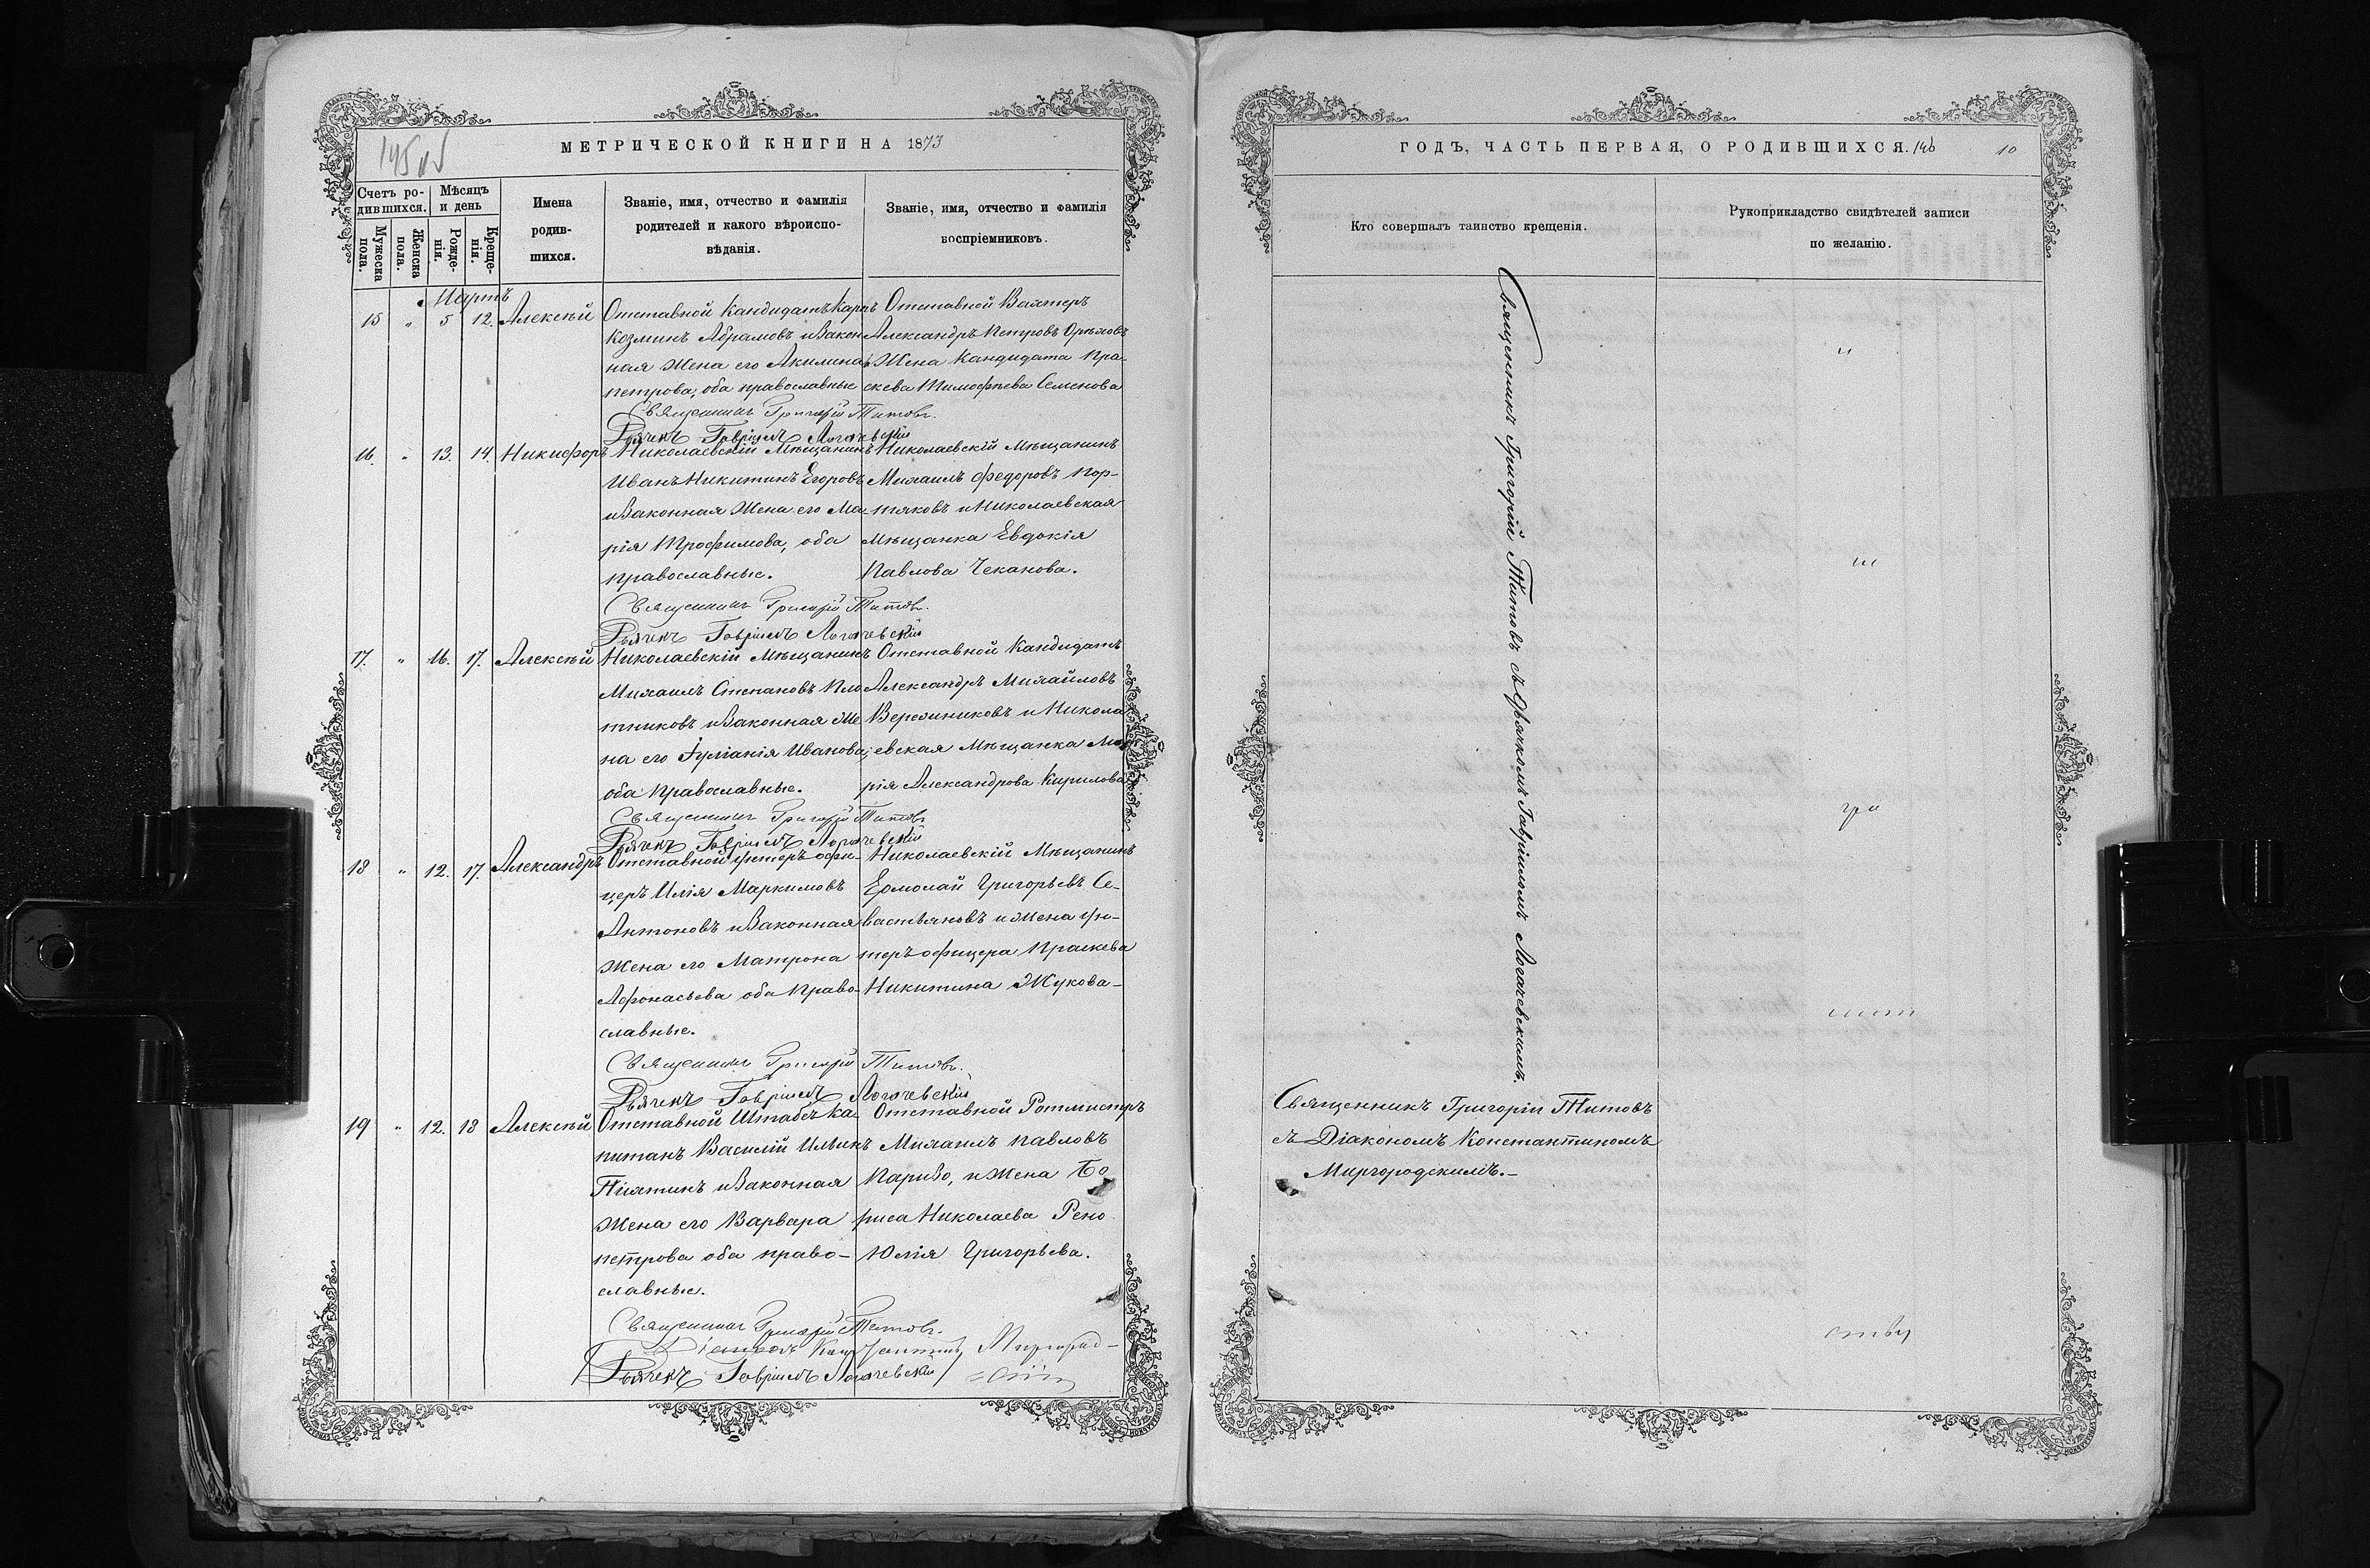 МЕТРИЧЕСКОЙ КНИГИ НА 1873
Счетъ ро-
дившихся.
Мѣсяцъ
и день
Мужеска
пола.
Женска
пола.
Рожде-
нія.
Креще-
нія.
Имена
родив-
шихся.
Званіе, имя, отчество и фамилія
родителей и какого вѣроиспо-
вѣданія.
Званіе, имя, отчество и фамилія
воспріемниковъ.
Мартъ
15 " 5 12. Алексѣй
Отставной Кандидатъ Карпъ
Козминъ Абрамовъ и закон
ная Жена его Акилина
петрова, оба православные
Отставной Вахтеръ
Александръ Петровъ Орѣховъ
Жена Кандидата Пра-
скева Тимофѣева Семенова
Священникъ Григорій Титовъ.
Дьячекъ Гавріилъ Логачевскій
16. " 13. 14. Никифоръ
Николаевскій Мѣщанинъ
Иванъ Никитинъ Егоровъ
и законная Жена его Ма-
рія Трофимова, оба
православные.
Николаевскій Мѣщанинъ
Михаилъ Федоровъ Пор-
тяковъ и Николаевская
Мѣщанка Евдокія
Павлова Чеканова.
Священникъ Григорій Титовъ.
Дьячекъ Гавріилъ Логачевскій
17. " 16. 17. Алексѣй
Николаевскій Мѣщанинъ
Михаилъ Степановъ Пло
тниковъ и законная Же
на его Іуліанія Иванова,
оба Православные.
Отставной Кандидатъ
Александръ Михайловъ
и Никола
евская Мѣщанка Ма
рія Александрова Кирилова
Священникъ Григорій Титовъ
Дьячекъ Гавріилъ Логачевскій
18 " 12. 17. Александръ
Отставной унтеръ офи-
церъ Илія Маркимовъ
Антоновъ и законная
Жена его Матрона
Афонасьева оба Право-
славные.
Николаевскій Мѣщанинъ
Ермолай Григорьевъ Се-
вастьяновъ и Жена ун-
теръ офицера Праскева
Никитина Жукова
Священникъ Григорій Титовъ.
Дьячекъ Гавріилъ Логачевскій
19 " 12. 18 Алексѣй
Отставной Штабсъ ка-
питанъ Василій Ильинъ
и законная
Жена его Варвара
петрова оба право-
славные.
Отставной Ротмистръ
Михаилъ Павловъ
Паризо, и Жена Бо
риса Николаева Рено
Юлія Григорьева.
Священникъ Григорій Титовъ.
Діаконъ Константинъ Миргород-
скій
Дьячекъ Гавріилъ Логачевскій
ГОДЪ, ЧАСТЬ ПЕРВАЯ, О РОДИВШИХСЯ. 146 10
Кто совершалъ таинство крещенія.
Рукоприкладство свидѣтелей записи
по желанію.
Священникъ Григорій Титовъ съ Дьячкомъ Гавріиломъ Логачевскимъ.
Священникъ Григоріи Титовъ
съ Діакономъ Константиномъ
Миргородскимъ.